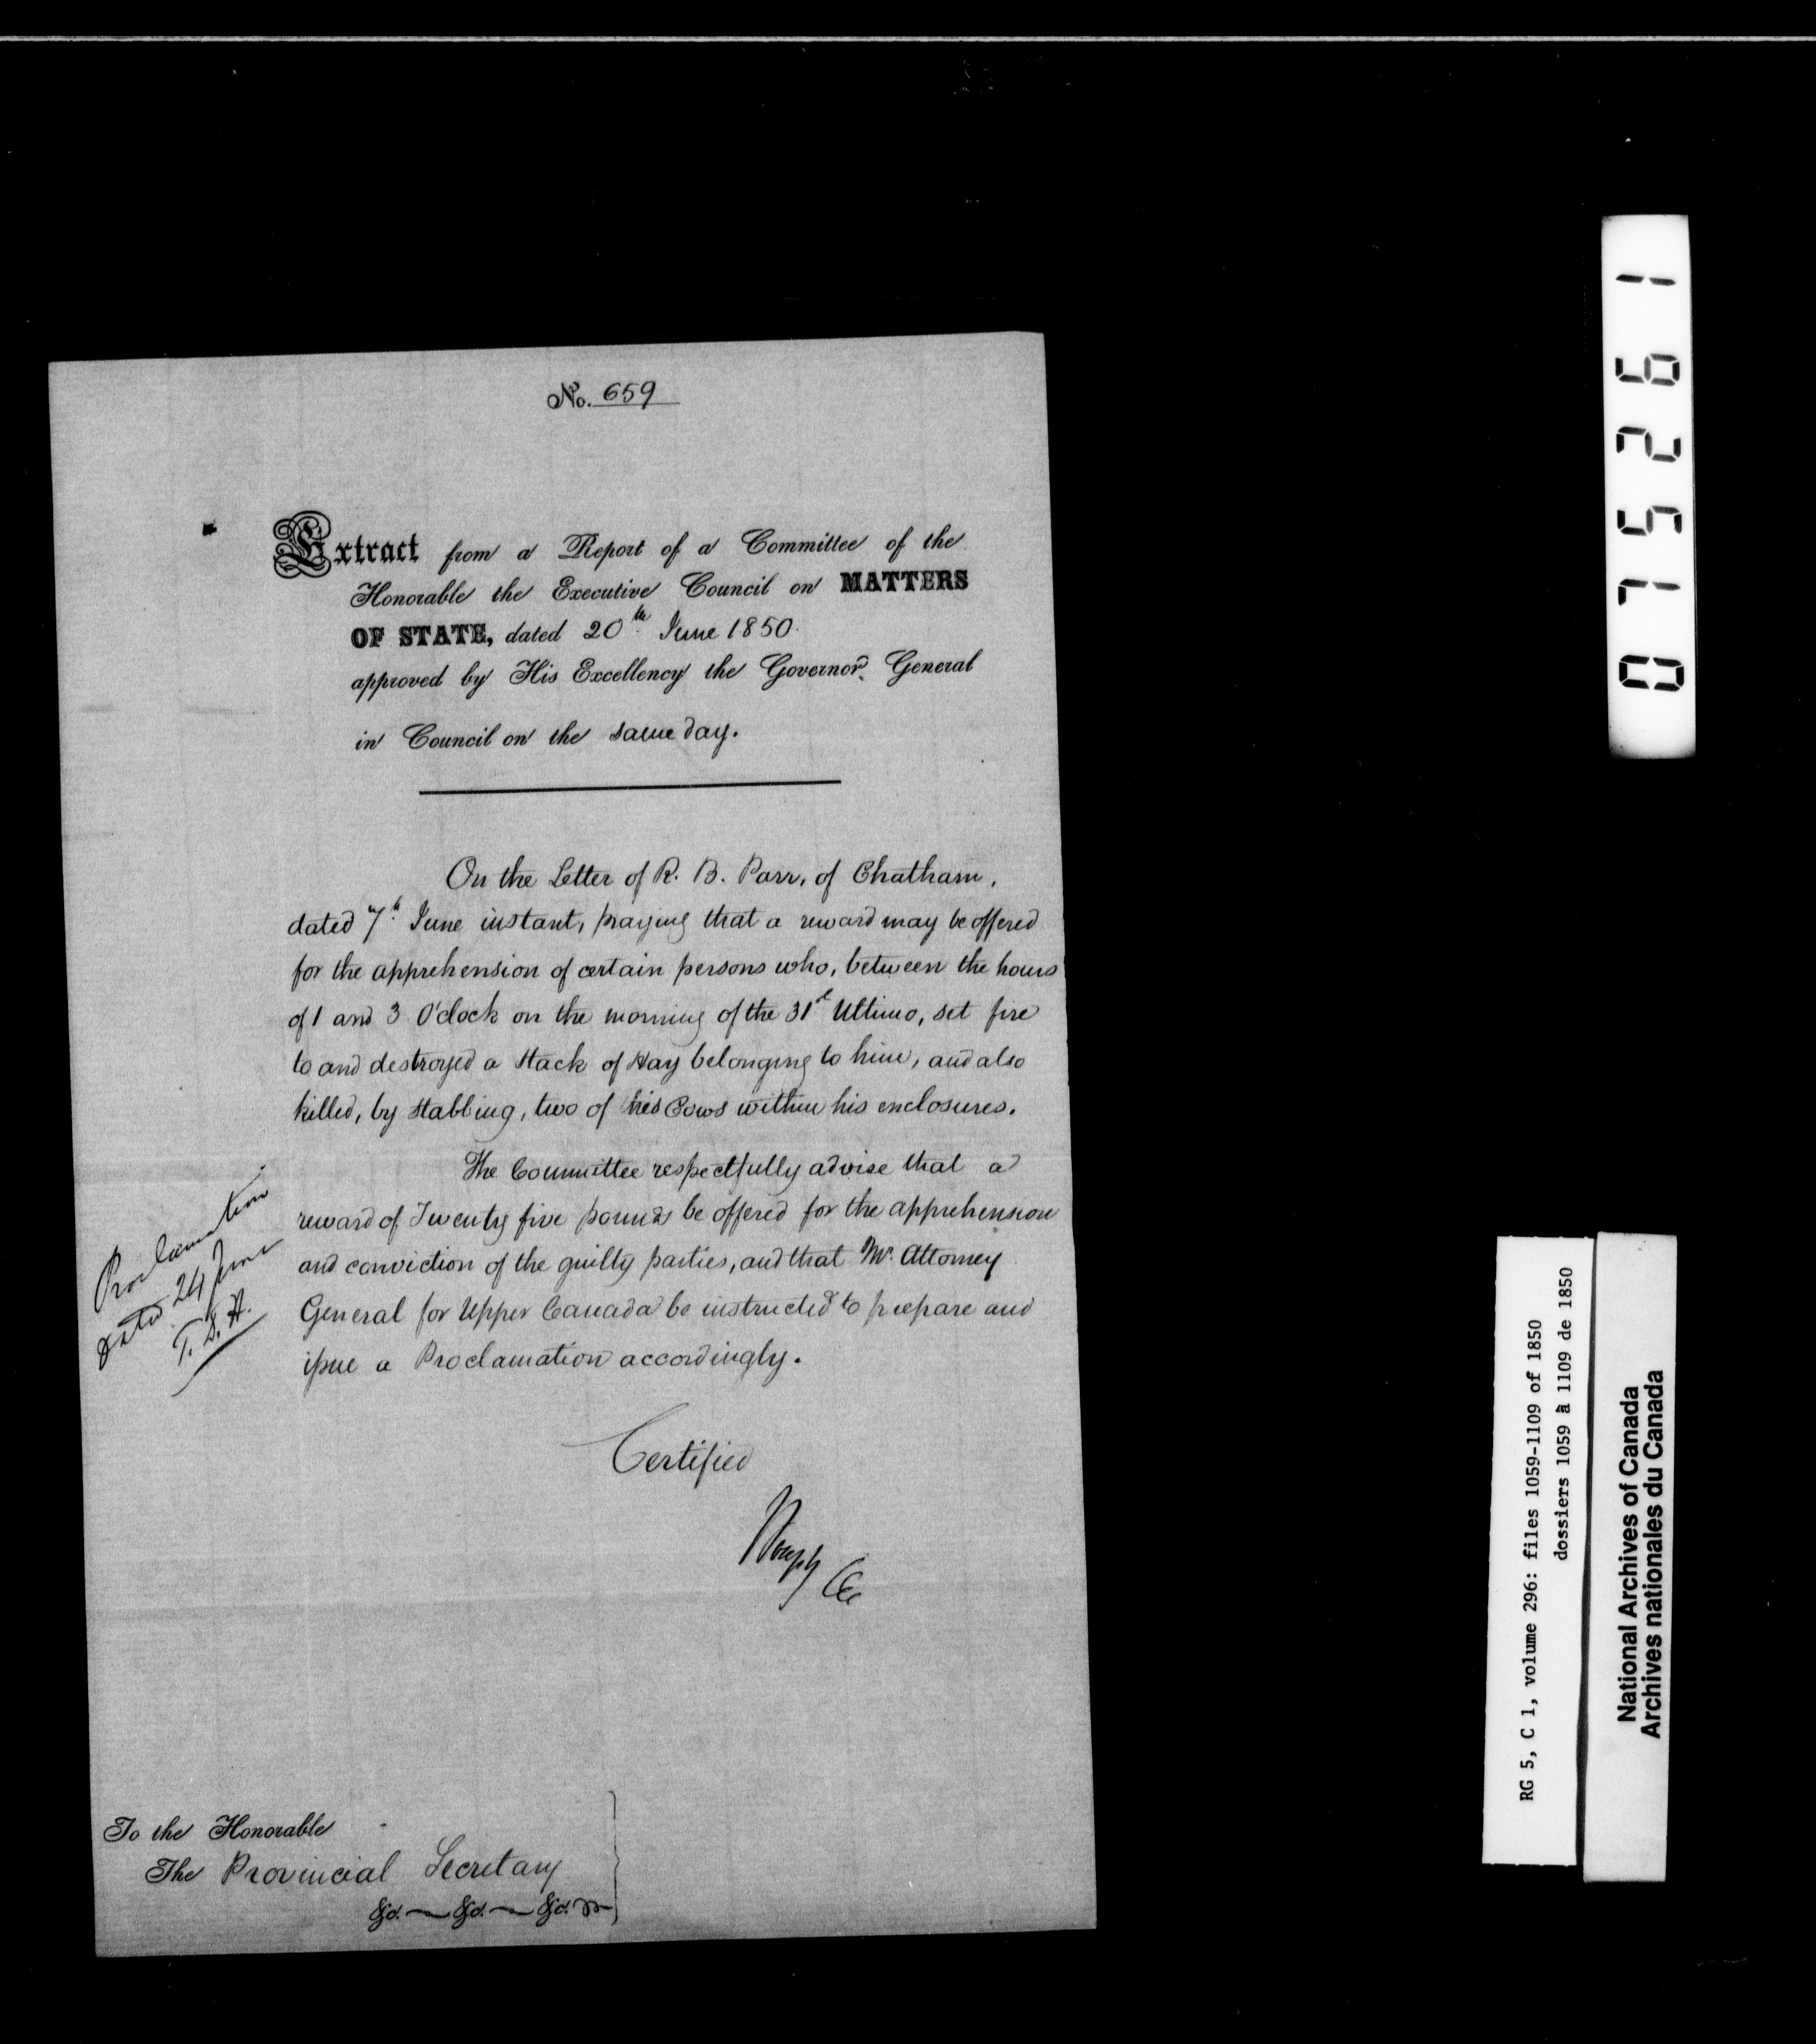 No. 659
Extract from a Report of a Committee of the
Honorable the Executive Council on MATTERS
OF STATE, dated 20th June 1850.
approved by His Excellency the Governor General
in Council on the same day.
On the Letter of R. B. Parr, of Chatham,
dated 7th June instant, praying that a reward may be offered
for the apprehension of certain persons who, between the hours
of 1 and 3 O'clock on the morning of the 31st Ultimo, set fire
to and destroyed a Stack of Hay belonging to him, and also
killed, by stabbing, two of his Cows within his enclosures.
The Committee respectfully advise that a
reward of Twenty five pounds be offered for the apprehension
and conviction of the guilty parties, and that Mr. Attorney
General for Upper Canada be instructed to prepare and
issue a Proclamation accordingly.
Proclamation
dated 24 June
T. D. H.
Certified
To the Honorable
The Provincial Secretary
&c. &c. &c.
075261
RG 5, C 1, volume 296: files 1059-1109 of 1850
dossiers 1059 à 1109 de 1850
National Archives of Canada
Archives nationales du Canada